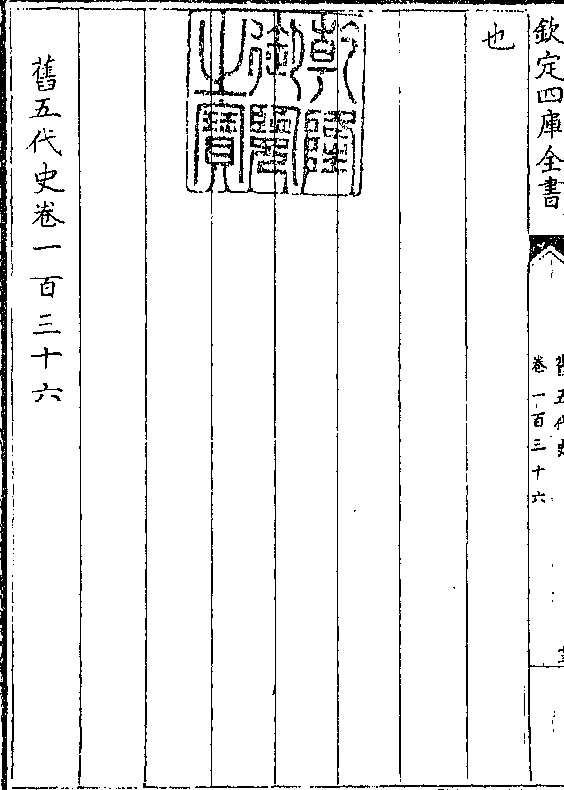 欽定四庫全書
舊五代史
卷一百三十六
也
乾隆御覽之寶
舊五代史卷一百三十六